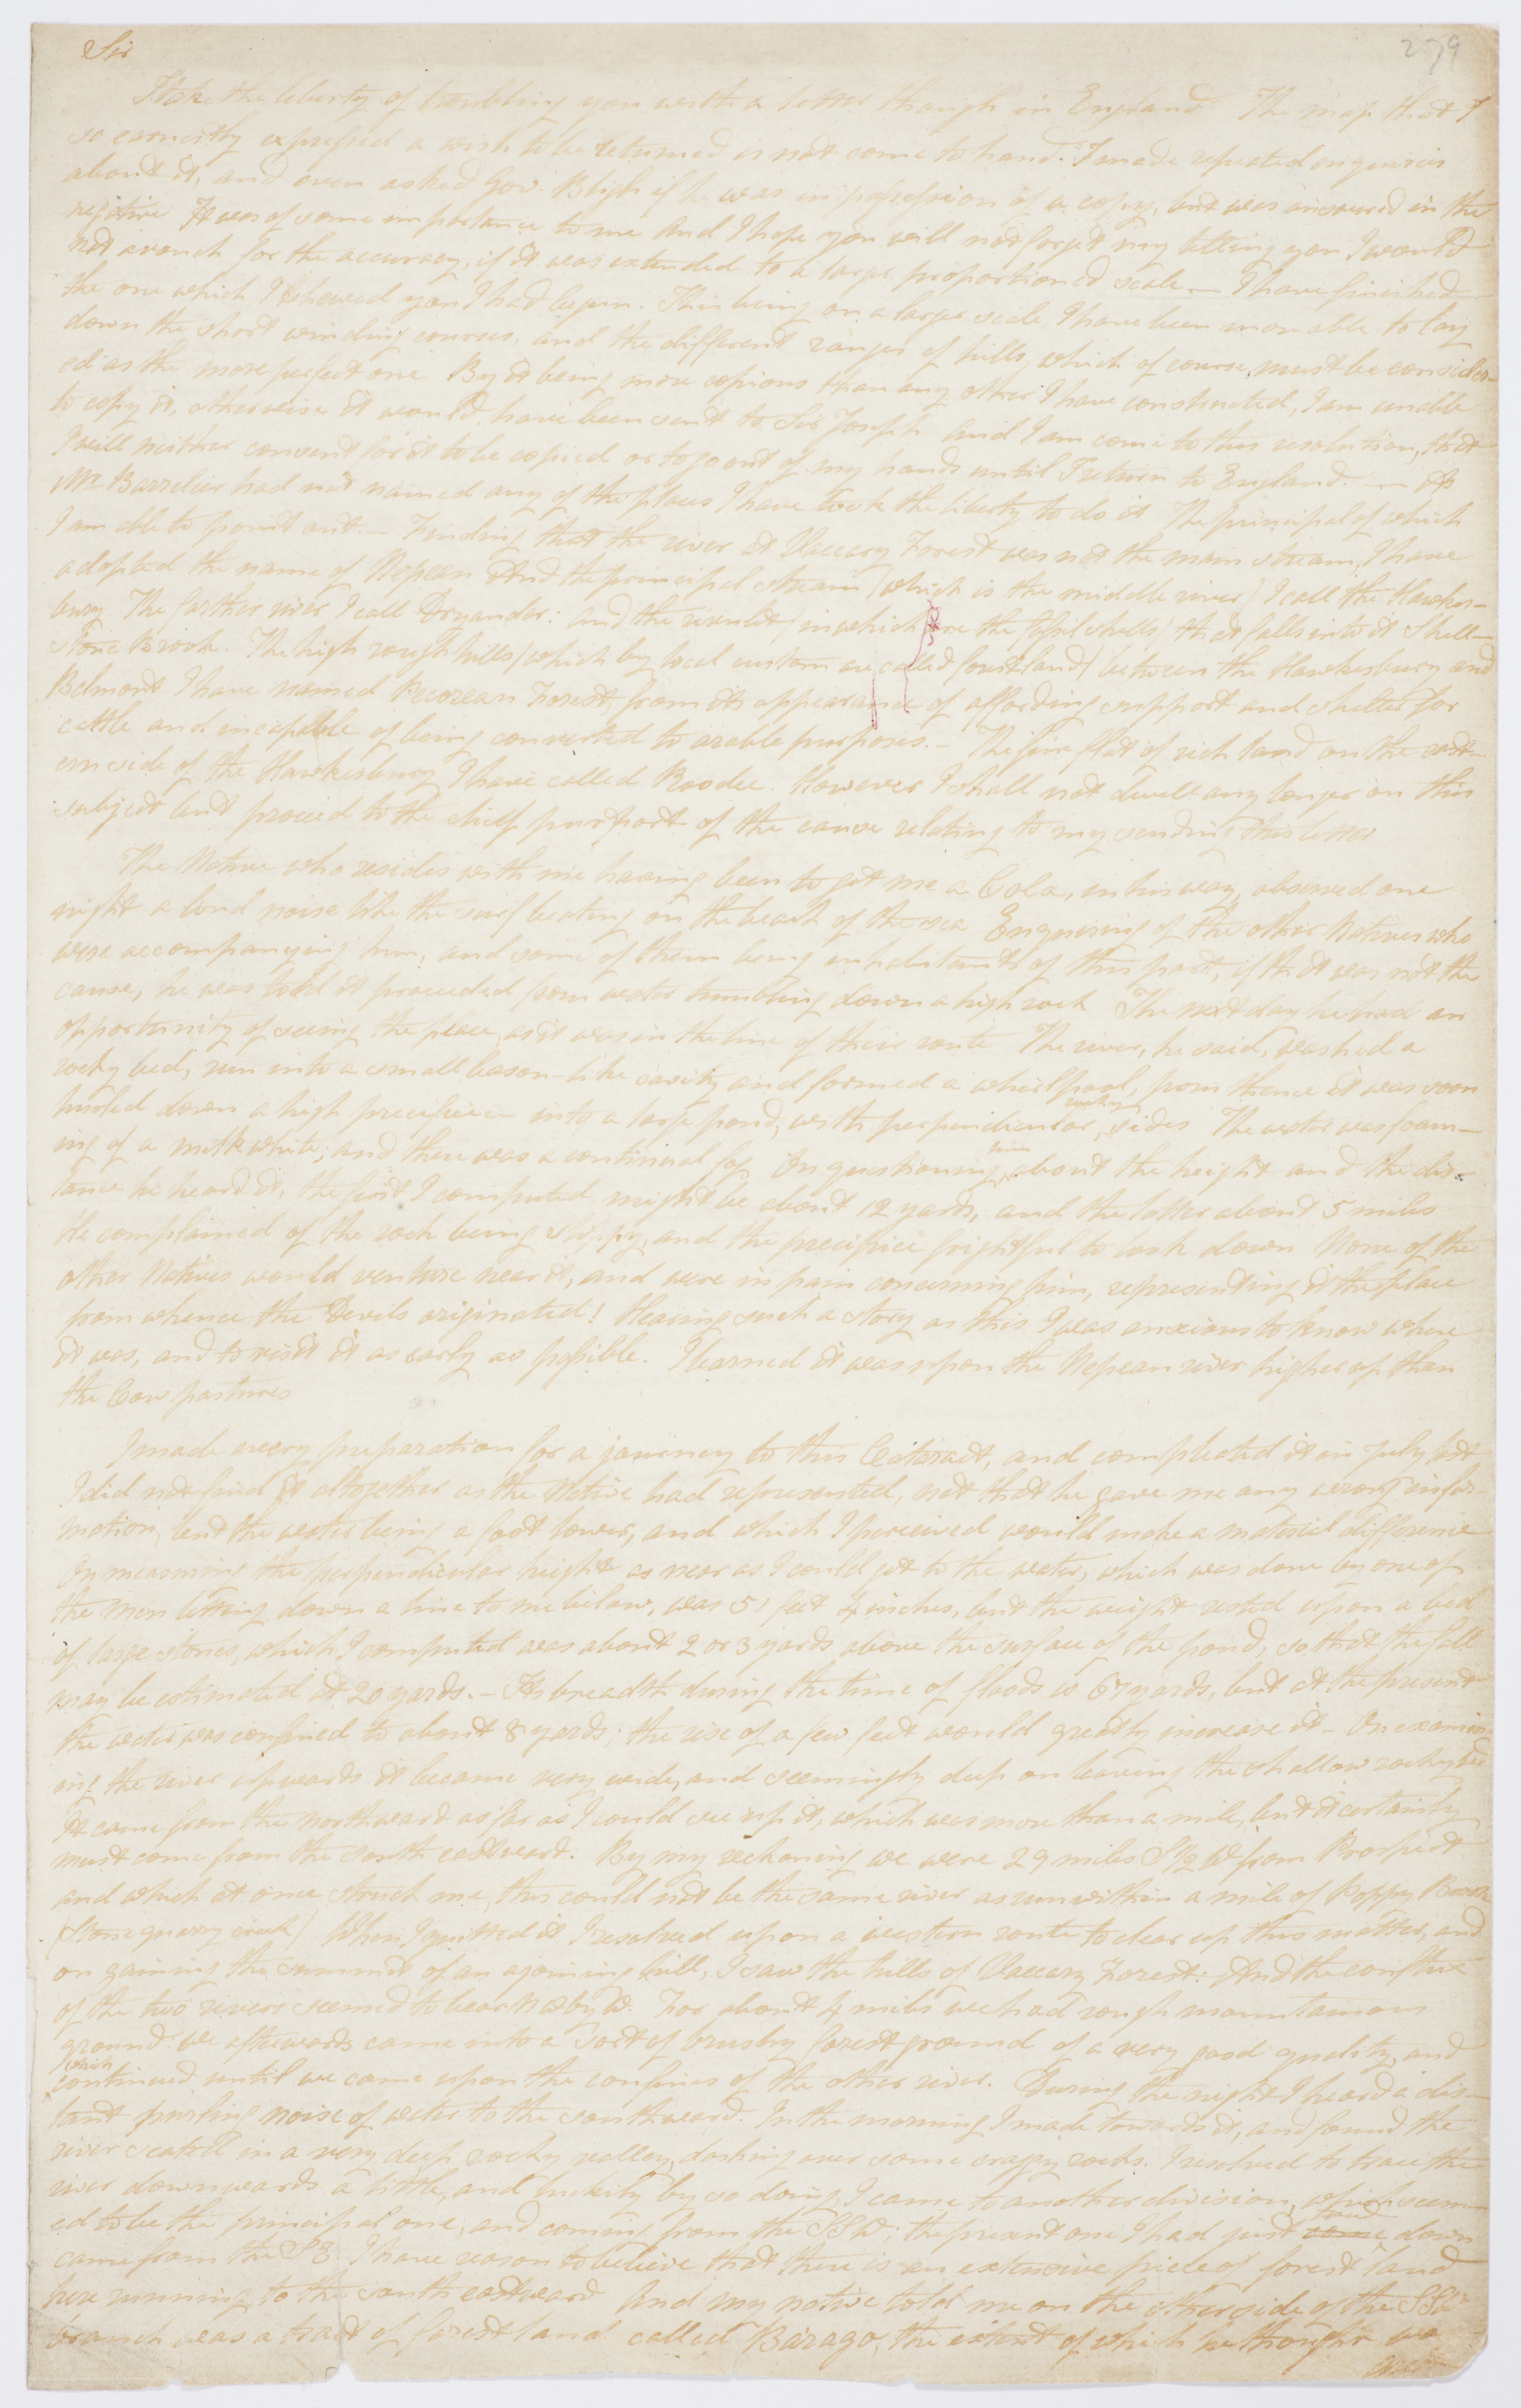 279
Sir
I take the liberty of troubling you with a letter though in England The map that I
so earnestly expressed a wish to be returned is not come to hand. I made repeated enquiries
about it, and even asked Gov. Bligh if he was in possession of a copy, but was answered in the
negative It was of some importance to me And I hope you will not forget my telling you I would
not avouch for the accuracy, if it was extended to a large proportioned scale — I have finished
the one which I shewed you I had begun. This being on a larger scale, I have been more able to lay
down the short winding courses, and the different ranges of hills, which of course, must be consider-
ed as the more perfect one By it being more copious than any other I have constructed, I am unable
to copy it, otherwise it would have been sent to Sir Joseph And I am come to this resolution, that
I will neither consent for it to be copied or to go out of my hands until I return to England. — As
Mr. Barrelier had not named any of the places I have took the liberty to do it The principal of which
I am able to point out. — Finding that the river at Vaccary Forest was not the main stream, I have
adopted the name of Nepean And the principal stream (which is the middle river) I call the Hawkes-
bury The farther river I call Dryander: and the rivulet (in which are the fossil shells) that falls into it Shell-
stone Brook. The high rough hills (which by local custom are called forest land) between the Hawkesbury and
Belmont I have named Pecorean Forest, from its appearance of affording support and shelter for
cattle and incapable of being converted to arable purposes. — The fine flat of rich land on the east-
ern side of the Hawkesbury I have called Roodee. However I shall not dwell any longer on this
subject but proceed to the chief purport of the cause relating to my sending this letter
The Native who resides with me having been to get me a Cola, in his way, observed one
night a loud noise like the surf beating on the beach of the sea Enquiring of the other Natives who
were accompanying him, and some of them being inhabitants of this part, if that was not the
cause, he was told it proceeded from water tumbling down a high rock The next day he had an
opportunity of seeing the place, as it was in the line of their route The river, he said, washed a
rocky bed, run into a small bason-like cavity and formed a whirlpool, from thence it was soon
hurled down a high precipice into a large pond, with perpendicular, rocky sides The water was foam-
ing of a milk white; and there was a continual fog On questioning him about the height and the dis-
tance he heard it, the first I computed might be about 12 yards, and the latter about 5 miles
He complained of the rock being slippy, and the precipice frightful to look down None of the
other Natives would venture near it, and were in pain concerning him, representing it the place
from whence the Devils originated! Hearing such a story as this I was anxious to know where
it was, and to visit it as early as possible. I learned it was upon the Nepean river higher up than
the Cow pastures
I made every preparation for a journey to this Cataract, and completed it in July last
I did not find it altogether as the Native had represented, not that he gave me any wrong infor-
mation, but the water being a foot lower, and which I perceived would make a material difference
On measuring the perpendicular height as near as I could get to the water, which was done by one of
the men letting down a line to me below, was 51 feet 4 inches, but the weight rested upon a bed
of large stones, which I computed was about 2 or 3 yards above the surface of the pond, so that the fall
may be estimated at 20 yards. — Its breadth during the time of floods is 67 yards, but at the present
the water was confined to about 8 yards; the rise of a few feet would greatly increase it — On examin-
ing the river upwards it became very wide, and seemingly deep on leaving the shallow rocky bed
It came from the northward as far as I could see up it, which was more than a mile, but it certainly
must come from the south eastward. By my reckoning we were 29 miles S 1/2 W from Prospect
and which at once struck me, this could not be the same river as run within a mile of Poppy Brook
(Stonequarry creek) When I quitted it I resolved upon a western route to clear up this matter, and
on gaining the summit of an ajoining hill, I saw the hills of Vaccary Forest: And the conflux
of the two rivers seemed to bear N by W. For about 4 miles we had rough mountainous
ground we afterwards came into a sort of brushy forest ground of a very good quality, and
which continued until we came upon the confines of the other river. During the night I heard a dis-
tant purling noise of water to the southward. In the morning I made towards it, and found the
river seated in a very deep rocky valley, dashing over some craggy rocks. I resolved to trace the
river downwards a little, and luckily by so doing, I came to another division, which seem-
ed to be the principal one, and coming from the SSW; the present one I had just traced down
came from the SE. I have reason to believe that there is an extensive piece of forest land
here running to the south eastward And my native told me on the other side of the SSW
branch was a tract of forest land called Bárago, the extent of which he thought was